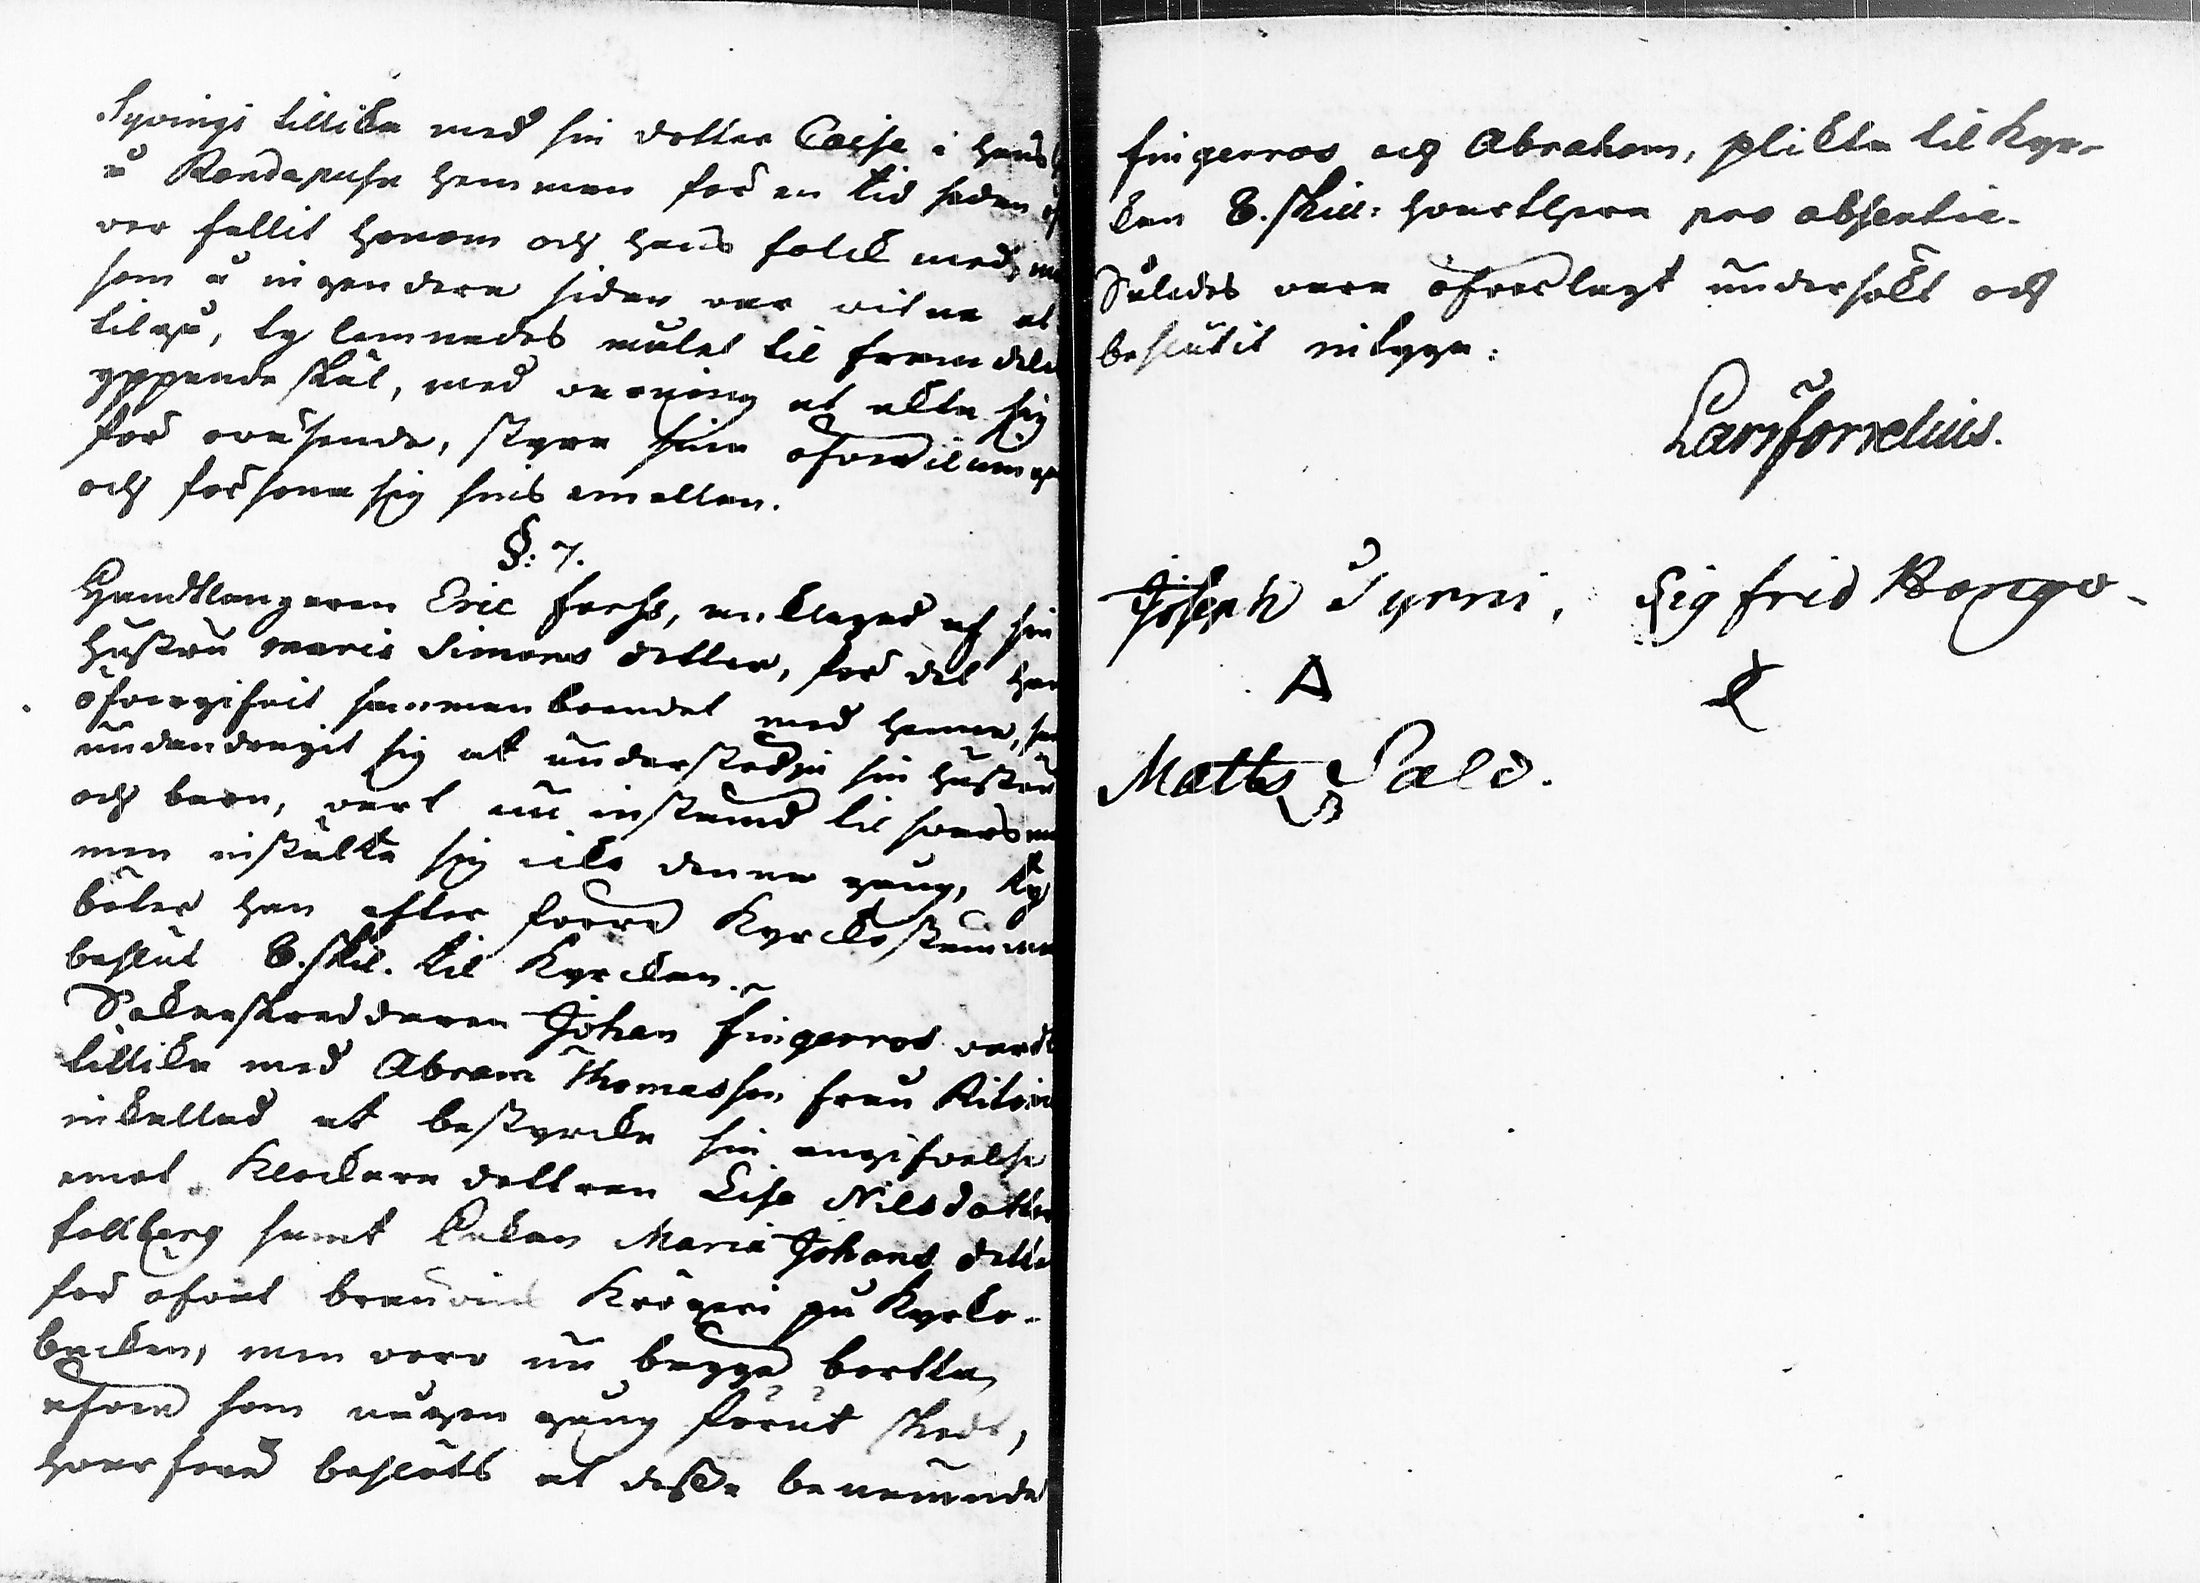 Tyvingi tillika med sin dotter Caisa i hans
å Randapusa hemman för en tid sedan
var fallit honom och hans folck med,
som å ingendera sidan var vitne at
tilgå, ty lemnades målet til framdeles
yppande skäl, med varning at ackta sig
för oväsende, styra sina
och försona sig sins emellan.
§: 7.
Handtlangaren Eric Forss, anklagad af sin
hustru Maria Simons dotter, för det han
öfvergifvit sammanboendet med henne,
undandragit sig at understödja sin hustru
och barn, vart nu instämd til svars
men instälte sig icke denna gång, ty
böter han efter förra Kyrckostämma
beslut 8. skil. til Kyrckan.
Sockneskreddaren Johan Fingerroos vardt
tillika med Abram Thomasson från Ritoin
inkallad at bestyrcka sin angifvelse
emot Klockare dottren Lisa Nilsdotter
Fallberg samt Enkan Maria Johans dotter
för öfvat bränvins Krögeri på Kyrko-
backen, men voro nu begge bortta,
äfven som någon gång förut skedt,
hvarföre beslöts at dessa benämnda
Fingerroos och Abraham, plikta til Kyr-
kan 8. skill: hvarthera pro absentia.
Således vara öfverlagt undersökt och
beslutit intyga:
Lars Fornelius.
Joseph Tynni, Sigfrid Kongo
A
Matts Palo.